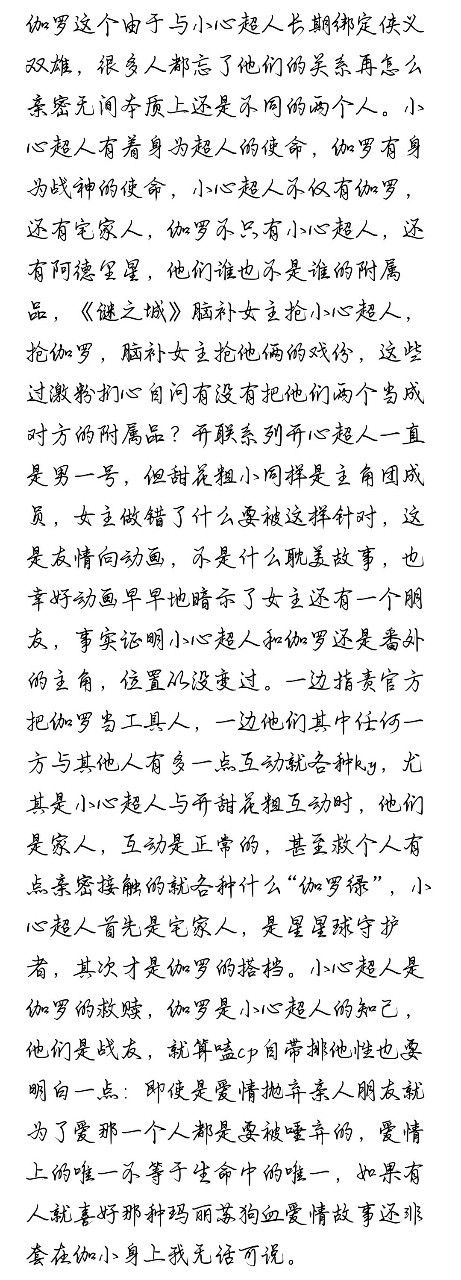 伽罗这个由于与小心超人长期绑定侠义
双雄，很多人都忘了他们的关系再怎么
亲密无间本质上还是不同的两个人。小
心超人有着身为超人的使命，伽罗有身
为战神的使命，小心超人不仅有伽罗，
还有宅家人，伽罗不只有小心超人，还
有阿德里星，他们谁也不是谁的附属
品，《谜之城》脑补女主抢小心超人，
抢伽罗，脑补女主抢他俩的戏份，这些
过激粉扪心自问有没有把他们两个当成
对方的附属品？开联系列开心超人一直
是男一号，但甜花粗小同样是主角团成
员，女主做错了什么要被这样针对，这
是友情向动画，不是什么耽美故事，也
幸好动画早早地暗示了女主还有一个朋
友，事实证明小心超人和伽罗还是番外
的主角，位置从没变过。一边指责官方
把伽罗当工具人，一边他们其中任何一
方与其他人有多一点互动就各种ky，尤
其是小心超人与开甜花粗互动时，他们
是家人，互动是正常的，甚至救个人有
点亲密接触的就各种什么“伽罗绿”，小
心超人首先是宅家人，是星星球守护
者，其次才是伽罗的搭档。小心超人是
伽罗的救赎，伽罗是小心超人的知己，
他们是战友，就算嗑cp自带排他性也要
明白一点：即使是爱情抛弃亲人朋友就
为了爱那一个人都是要被唾弃的，爱情
上的唯一不等于生命中的唯一，如果有
人就喜好那种玛丽苏狗血爱情故事还非
套在伽小身上我无话可说。